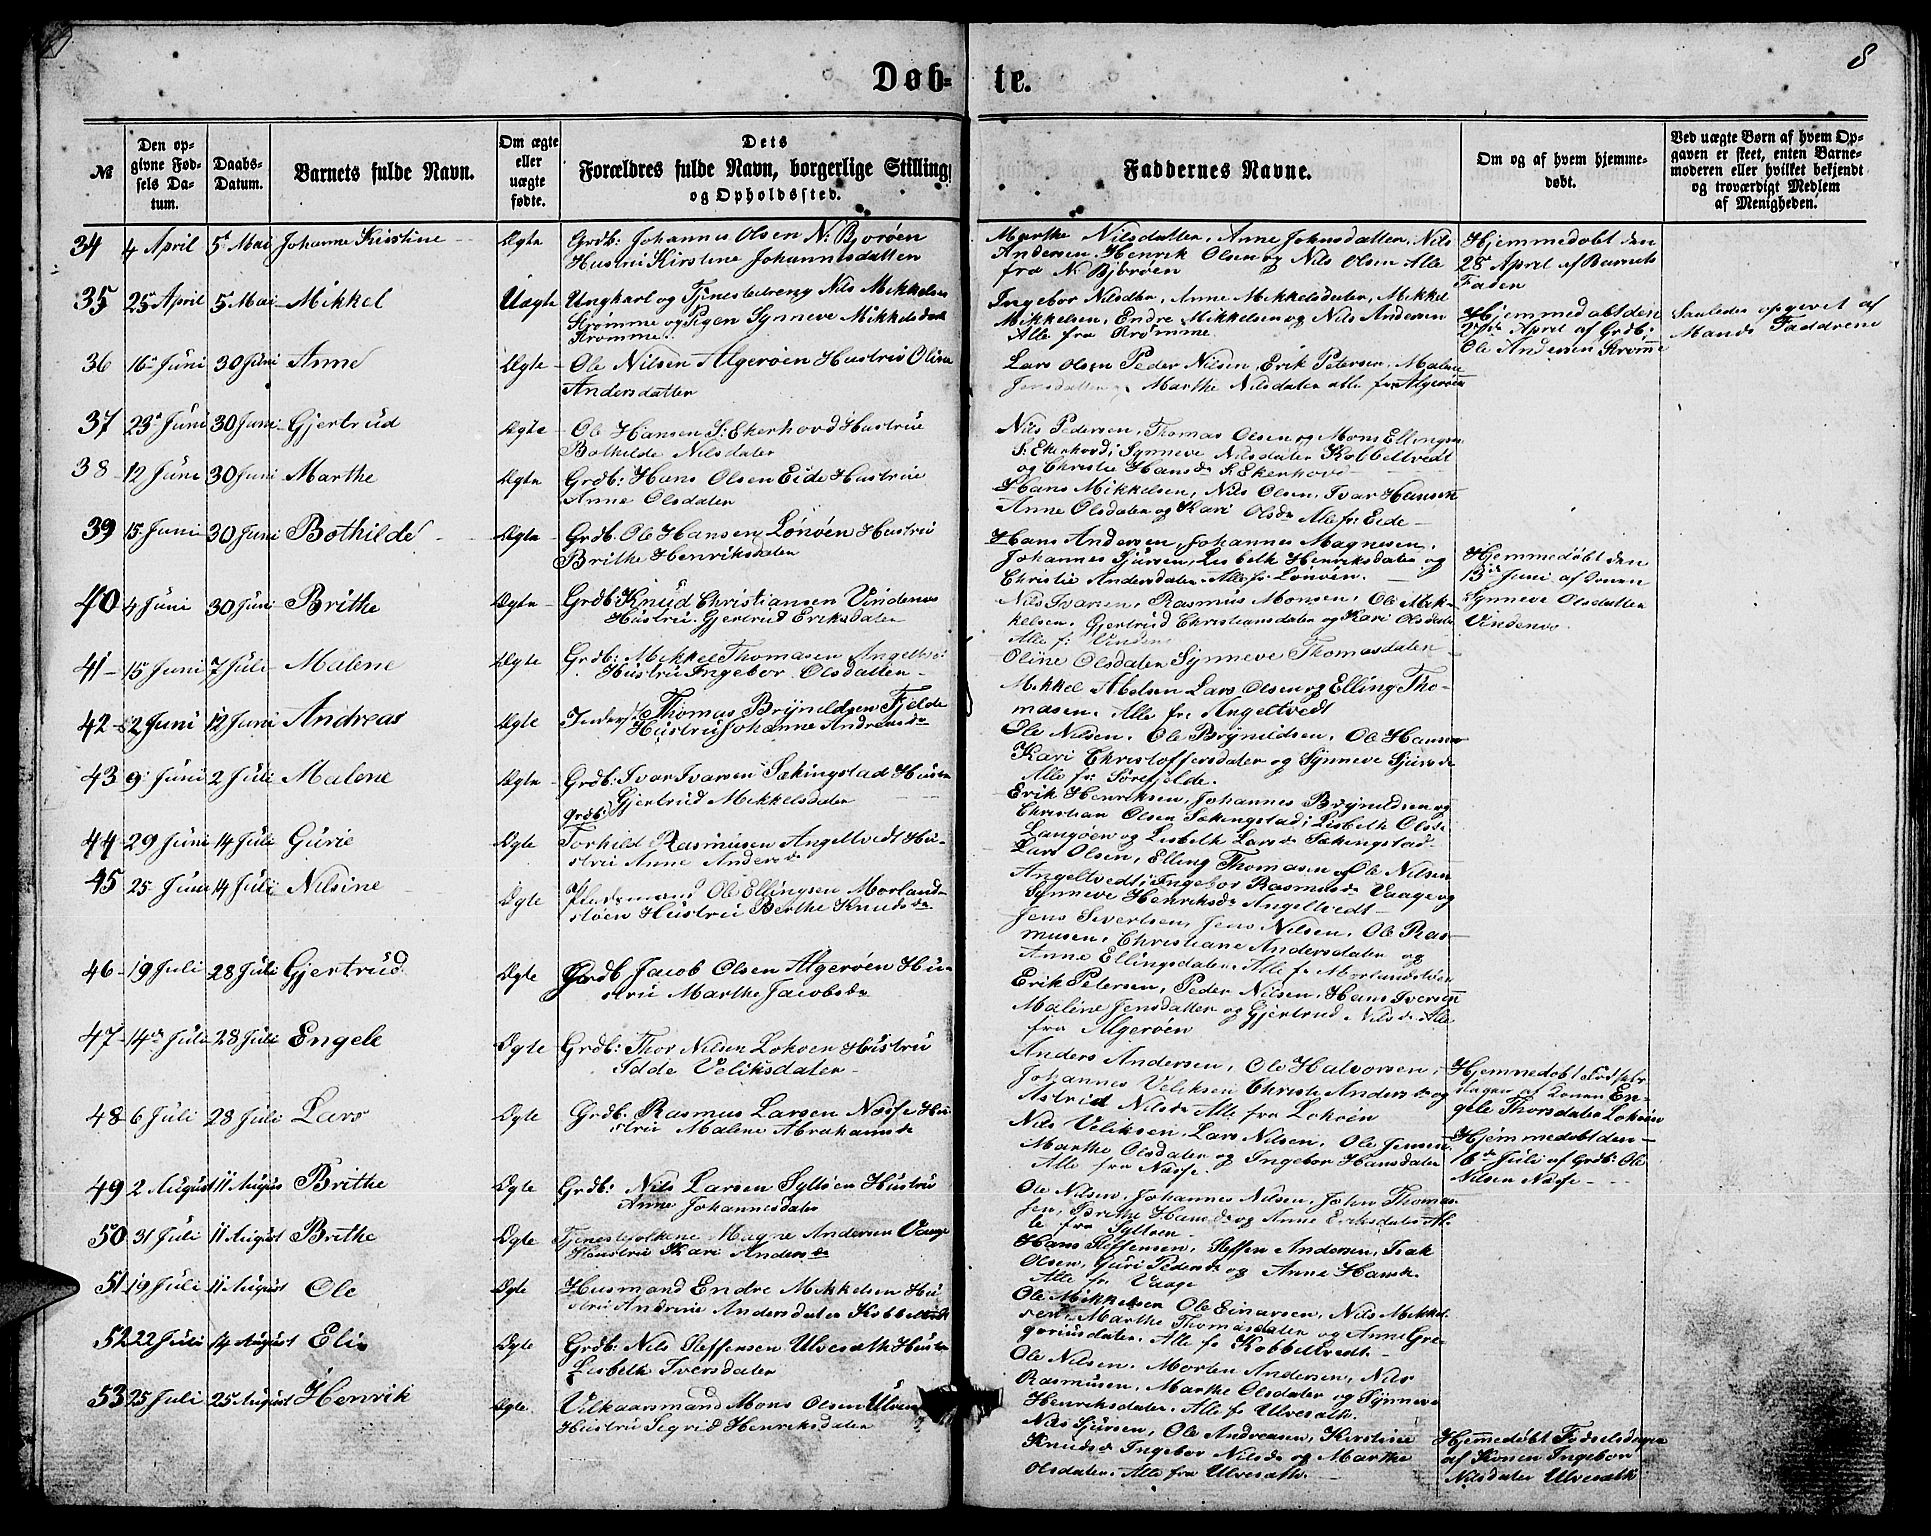 8
Døb-
te.
№
Den op-
givne Fød-
sels Da-
tum.
Daabs-
Datum.
Barnets fulde Navn.
Om ægte
eller
uægte
fødte.
Dets
Forældres fulde Navn, borgerlige Stilling
og Opholdssted.
Faddernes Navne.
Om og af hvem hjemme-
døbt.
Ved uægte Børn af hvem Op-
gaven er skeet, enten Barne-
moderen eller hvilket bekjendt
og troværdigt Medlem
af Menigheden.
34 4 April 5t Mai Johanne Kirstine Ægte Grdb: Johannes Olsen N: Bjorøen
Hustru Kirstine Johannesdatten
Marthe Nilsdatter, Anne Johnsdatter, Nils
Andersen, Henrik Olsen og Nils Olsen Alle
fra N: Bjorøen
Hjemmedøbt den
28 April af Barnets
Fader
35 25 April 5 Mai Mikkel Uægte Ungkarl og Tjenestedreng Nils Mikkelsen
Strømme og Pigen Synneve Mikkelsdatt
Strømme.
Ingebor Nilsdtr, Anne Mikkelsdater, Mikkel
Mikkelsen, Endre Mikkelsen og Nils Andersen
Alle fra Strømme
Hjemmedøbt den
27de April af Grdb:
Ole Andersen Strømme
Saaledes opgivet af
Mands Faddrene
36 16 Juni 30 Juni Anne Ægte Ole Nilsen Algerøen Hustru Oline
Andersdatter
Lars Olsen Peder Nilsen, Erik Petersen, Malene
Jensdatter og Marthe Nilsdater alle fra Algerøen
37 23 Juni 30 Juni Gjertrud Ægte Ole Hansen S: Ekerhovd Hustrue
Bothilde Nilsdater
Nils Pedersen, Thomas Olsen og Mons Ellingsen
S: Ekerhovd; Synneve Nilsdater Kobbeltvedt
og Christie Hansd. S: Ekerhovd
38 12 Juni 30 Juni Marthe Ægte Grdb: Hans Olsen Eide Hustrue
Anne Olsdater
Hans Mikkelsen, Nils Olsen, Ivar Hansen
Anne Olsdater og Kari Olsdr Alle fr: Eide
39 15 Juni 30 Juni Bothilde Ægte Grdb. Ole Hansen Lønøen Hustru
Brithe Henriksdater
Hans Andersen, Johannes Magnesen,
Johannes Sjursen, Lisbeth Henriksdater og
Christie Andersdater. Alle fr Lønøen.
40 4 Juni 30 Juni Brithe Ægte Grdb: Knud Christiansen Vindenes
Hustru Gjertrud Eriksdater
Nils Ivarsen, Rasmus Monsen, Ole Mik-
kelsen, Gjertrud Christiansdater og Kari Olsdater
Alle f: Vinden
Hjemmedøbt den
13de Juni af Konen
Synneve Olsdatter
Vindenes
41 15 Juni 7 Juli Malene Ægte Grdb: Mikkel Thomasen Angeltvedt
Hustru Ingebor Olsdatter
Oline Olsdater Synneve Thomasdater
Mikkel Abelsen Lars Olsen og Elling Tho-
masen. Alle fr. Angeltvedt
42 2 Juni 12 Juni Andreas Ægte Thomas Brynildsen Fjelde
Hustru Johanne Andreasdr
Ole Nilsen, Ole Brynildsen, Ole Hansen
Kari Christoffersdater og Synneve Sjursdr
Alle fr: Sørefjelde.
43 9 Juni 2 Juli Malene Ægte Grdb: Ivar Ivarsen Sækingstad Hustru
Gjertrud Mikkelsdater
Erik Henriksen, Johannes Brynildsen og
Christian Olsen Sækingstad; Lisbeth Olsdr
Langøen og Lisbeth Larsdr Sækingstad
44 29 Juni 14 Juli Gurie Ægte Grdb: Torkild Rasmusen Angeltvedt Hu-
stru Anne Andersdr
Lars Olsen, Elling Thomasen og Ole Nilsen
Angeltvedt; Ingebor Rasmusdr Vaage og
Synneve Henriksdr Angeltvedt
45 25 Juni 14 Juli Nilsine Ægte Pladsmand Ole Ellingsen Morland-
støen Hustru Berthe Knudsdr
Jens Sivertsen, Jens Nilsen, Ole Ras-
musen, Christiane Andersdater og
Anne Ellingsdater. Alle fr Morlandstøen
46 19 Juli 28 Juli Gjertrud Ægte Grdb. Jacob Olsen Algerøen Hu-
stru Marthe Jacobsdr
Erik Petersen, Peder Nilsen, Hans Iversen
Malene Jensdatter og Gjertrud Nilsdr Alle
fra Algerøen
47 14de Juli 28 Juli Engele Ægte Grdb: Thor Nilsen Lokøen Hustru
Idde Veliksdater
Anders Andersen, Ole Halvorsen,
Johannes Veliksen Christi Andersdr og
Astrid Nilsdr Alle fra Lokøen
Hjemmedøbt Fødsels-
dagen af Konen En-
gele Thorsdater Lokøen
48 6 Juli 28 Juli Lars Ægte Grdb: Rasmus Larsen Næsse Hu-
stru Malene Abrahamsdr
Nils Veliksen, Lars Nilsen, Ole Jensen
Marthe Olsdater og Ingebor Hansdater
Alle fra Næsse.
Hjemmedøbt den
16de Juli af Grdb: Ole
Nilsen Næsse
49 2 August 11 Augus Brithe Ægte Grdb: Nils Larsen Syltøen Hustru
Anne Johannesdater
Ole Nilsen, Johannes Nilsen, John Thomas-
sen, Brithe Hansdr og Anne Eriksdater Al-
le fra Syltøen
50 31 Juli 11 August Brithe Ægte Tjenestefolkene Magne Andersen Vaage
Hustru Kari Andersdr
Hans Steffensen, Steffen Andersen, Isak
Olsen, Guri Pedersdr og Anne Hansdr
Alle fr Vaage
51 19 Juli 11 August Ole Ægte Husmand Endre Mikkelsen Hu-
stru Andrine Andersdater Kobbeltvedt
Ole Mikkelsen Ole Einarsen, Nils Mikkel-
sen, Marthe Thomasdater og Anne Gre-
goriusdater. Alle fr Kobbeltvedt.
52 22 Juli 14 August Eli Ægte Grdb: Nils Steffensen Ulvesæth Hustru
Lisbeth Iversdater
Ole Nilsen, Morten Andersen, Nils
Rasmusen, Marthe Olsdater og Synneve
Henriksdater. Alle fr Ulvesæth.
53 25 Juli 25 August Henrik Ægte Vilkaarmand Mons Olsen Ulve
Hustru Sigrid Henriksdater
Nils Sjursen, Ole Andreasen, Kirstine
Knudsdr Ingebor Nilsdr og Marthe
Olsdater. Alle fra Ulvesæth.
Hjemmedøbt Fødselsdagen
af Konen Ingebor
Nilsdater Ulvesæth